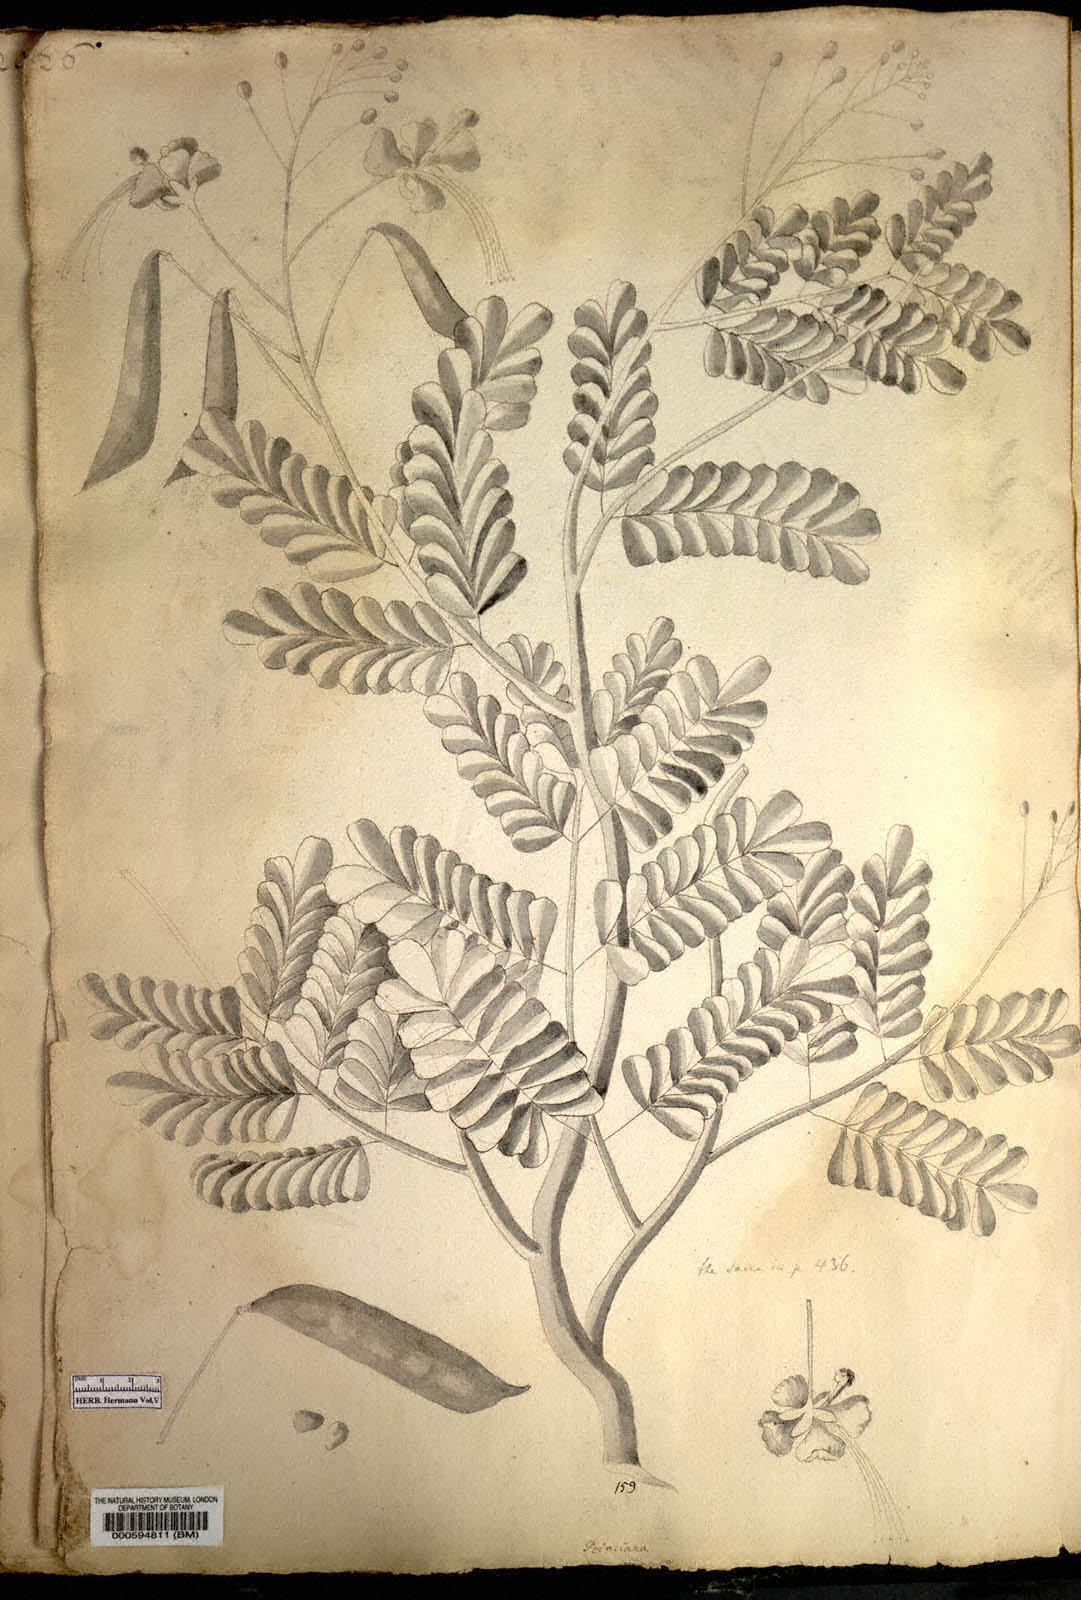 the same in p 436.
HERB. Hermann Vol.V
THE NATURAL HISTORY MUSEUM, LONDON
DEPARTMENT OF BOTANY
000594811 (BM)
159
Poinciana